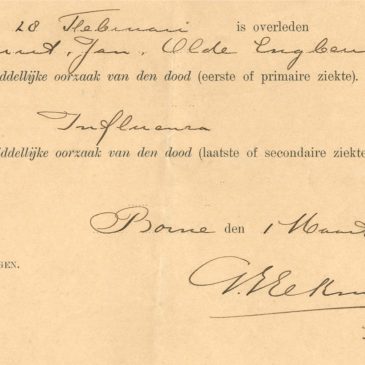 28 Februari is overleden
Jan. Olde Engber
ddellijke oorzaak van den dood (eerste of primaire ziekte).
Influenza
iddellijke oorzaak van den dood (laatste of secondaire ziekte
Borne den 1 Maart
GEN.